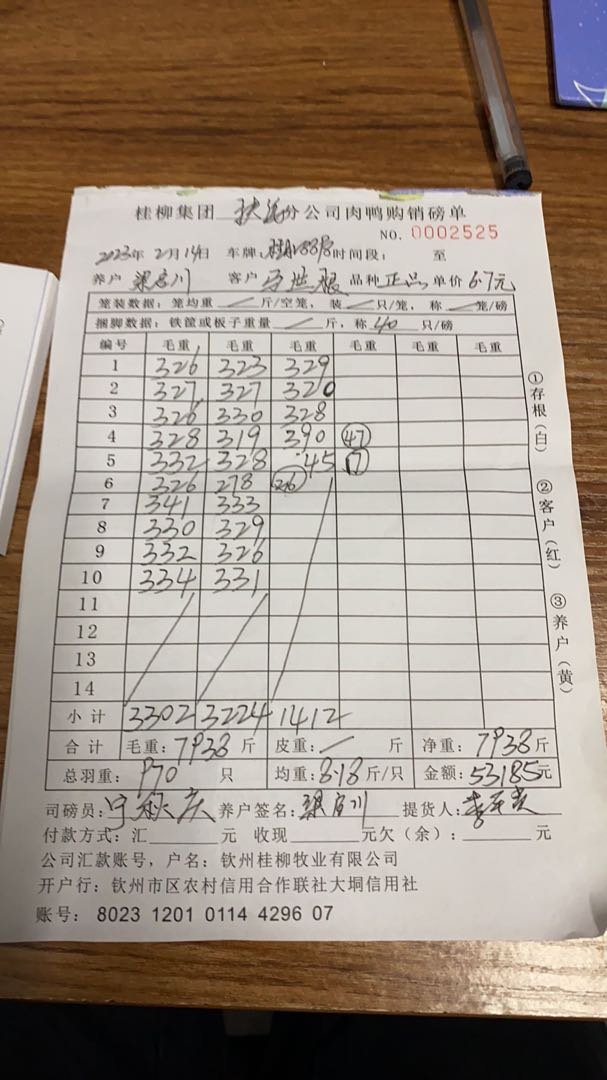 桂柳集团 扶绥 分公司肉鸭购销磅单
NO. 0002525
2023年 2月 14日 车牌: 时间段: 至
养户 客户 品种 正品 单价 6.7元
笼装数据: 笼均重 / 斤/空笼, 装 / 只/笼, 称 / 笼/磅
捆脚数据: 铁筐或板子重量 / 斤, 称 40 只/磅
编号 毛重 毛重 毛重 毛重 毛重 毛重
1 326 323 329
2 327 327 320
3 326 330 328
4 328 319 390 47
5 332 328 45 17
6 326 278 36
7 341 333
8 330 329
9 332 326
10 334 331
11
12
13
14
小计 3302 3224 1412
合计 毛重: 7938 斤 皮重: / 斤 净重: 7938 斤
总羽重: 970 只 均重: 8.18 斤/只 金额: 53185元
司磅员: 养户签名: 提货人:
付款方式: 汇 元 收现 元欠(余): 元
公司汇款账号, 户名: 钦州桂柳牧业有限公司
开户行: 钦州市区农村信用合作联社大垌信用社
账号: 8023 1201 0114 4296 07
①存根(白)
②客户(红)
③养户(黄)